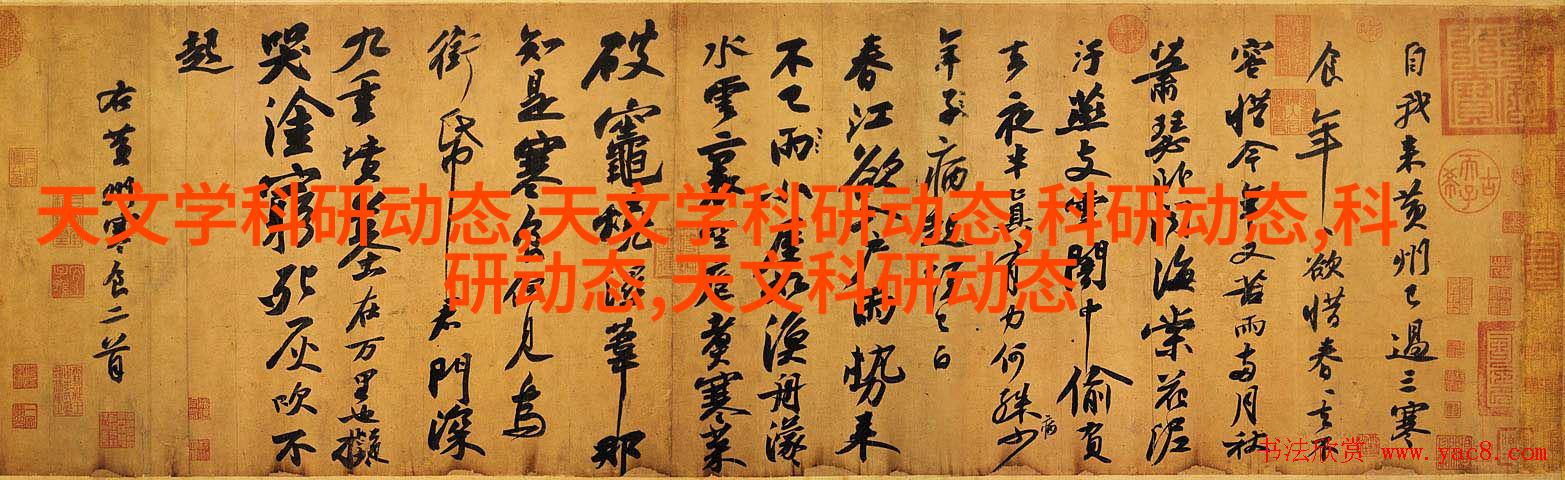 自我来黄州已過三寒
食年〻欲惜春〻去不
容惜今年又苦雨兩月秋
蕭瑟卧聞海棠花泥
汙燕支雪闇中偷負
去夜半真有力何殊少
病
年子病起頭已白
春江欲入户雨勢来
不已雨小屋如漁舟濛〻
水雲裏空庖煮寒菜
破竈燒濕葦那
知是寒食但見烏
銜帋君門深
九重墳墓在万里也擬
哭塗窮死灰吹不
起
右黄州寒食二首
天文学科研动态,天文学科研动态,科研动态,科
研动态,天文科研动态
书法欣赏 www.yac8.com